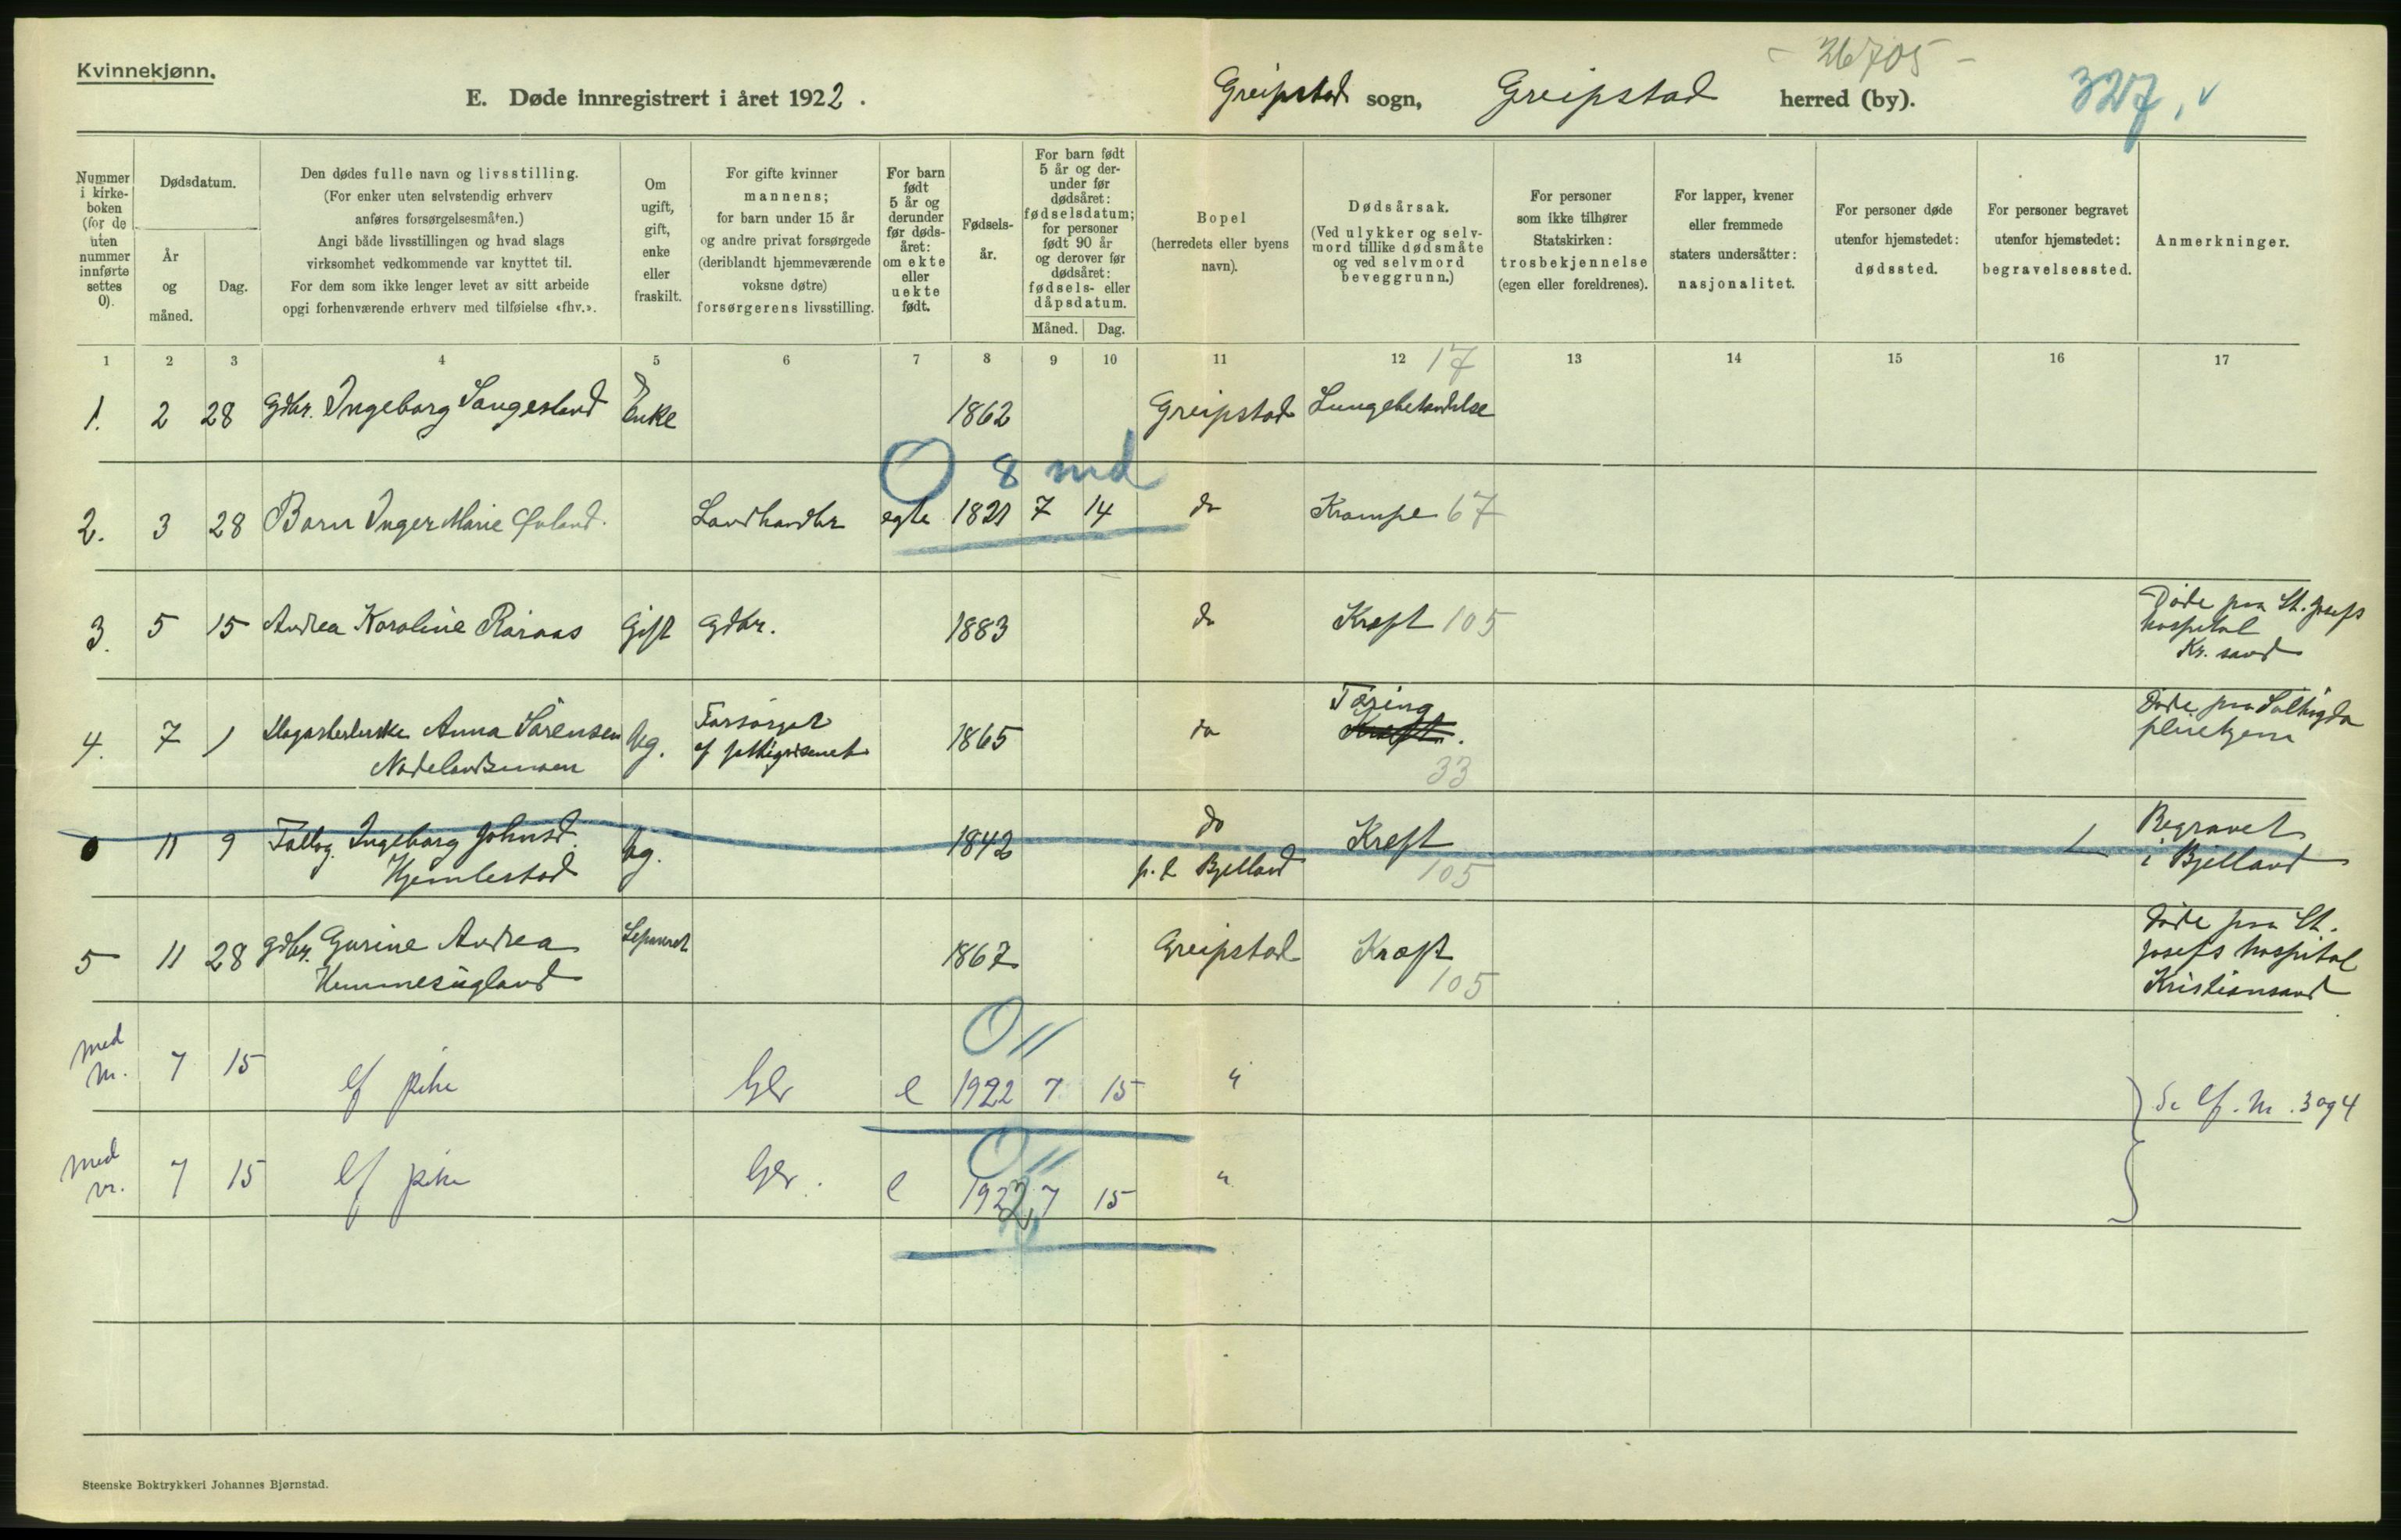 Kvinnekjønn.
- 26705 -
327, v
E. Døde innregistrert i året 1922.
Greipstad sogn, Greipstad herred (by).
Nummer i kirke- boken (for de uten nummer innførte settes 0).
Dødsdatum.
År og måned.
Dag.
Den dødes fulle navn og livsstilling.
(For enker uten selvstendig erhverv
anføres forsørgelsesmåten.)
Angi både livsstillingen og hvad slags
virksomhet vedkommende var knyttet til.
For dem som ikke lenger levet av sitt arbeide
opgi forhenværende erhverv med tilføielse «fhv.».
Om ugift, gift, enke eller fraskilt.
For gifte kvinner
mannens;
for barn under 15 år
og andre privat forsørgede
(deriblandt hjemmeværende
voksne døtre)
forsørgerens livsstilling.
For barn født 5 år og derunder før døds- året: om ekte eller uekte født.
Fødsels- år.
For barn født 5 år og der- under før dødsåret: fødselsdatum; for personer født 90 år og derover før dødsåret: fødsels- eller dåpsdatum.
Måned. Dag.
Bopel
(herredets eller byens
navn).
Dødsårsak.
(Ved ulykker og selv-
mord tillike dødsmåte
og ved selvmord
beveggrunn.)
For personer
som ikke tilhører
Statskirken:
trosbekjennelse
(egen eller foreldrenes).
For lapper, kvener
eller fremmede
staters undersåtter:
nasjonalitet.
For personer døde
utenfor hjemstedet:
dødssted.
For personer begravet
utenfor hjemstedet:
begravelsessted.
Anmerkninger.
1 2 3 4 5 6 7 8 9 10 11 12 13 14 15 16 17
17
1. 2 28 Gdbr. Ingeborg Sangesland Enke 1862 Greipstad Lungebetændelse
O 8 md
2. 3 28 Barn Inger Marie Øvland. Landhandlr egte 1821 7 14 do Krampe 67
3. 5 15 Andrea Karoline Raraas Gift Gdbr. 1883 do Kræft 105
Døde paa St. Josefs
hospital
Kr. sand
4. 7 1 Anna Sørensen Ug. Forsørget 1865 do Tæring
Kræft.
af fattigvæsenet
33
Døde paa
pleiehjem
0 11 9 Ingeborg Johnsd. Ug. 1842 do Kreft
Hjemlestad
p. t. Bjelland
105
Begravet
i Bjelland
5 11 28 Gdbr. Gurine Andrea Separert 1867 Greipstad Kræft
105
Døde paa St.
Josefs hospital
Kristiansand
O //
med
nr. 7 15 lf pike Gbr e 1922 7 15 "
Se lf. nr. 3 og 4
O //
med
nr. 7 15 lf pike Gbr. e 1922 7 15 "
Steenske Boktrykkeri Johannes Bjørnstad.